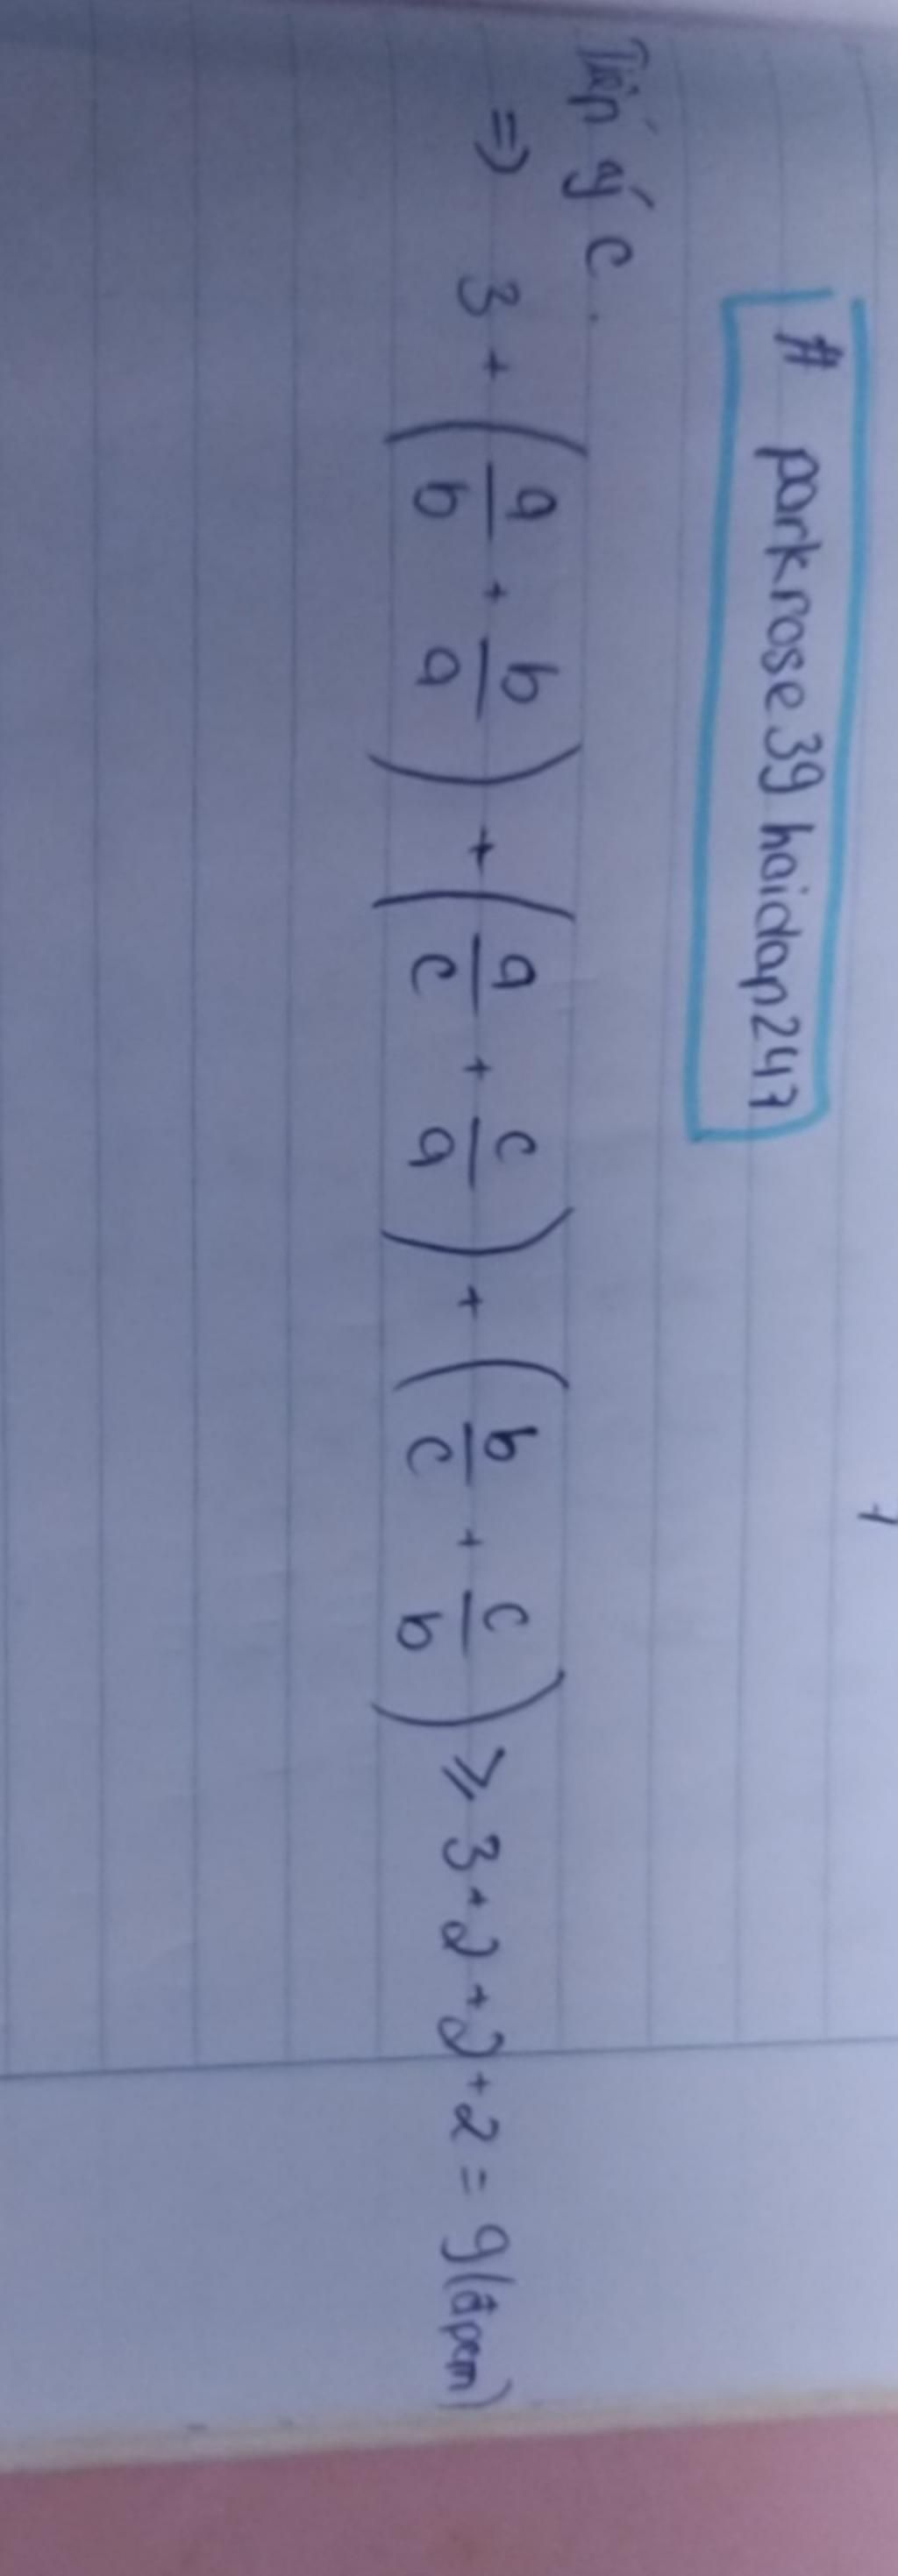 # parkrose39 hoidap247
Tiếp ý c.
=> 3 + (a/b + b/a) + (a/c + c/a) + (b/c + c/b) ≥ 3+2+2+2 = 9 (đpcm)